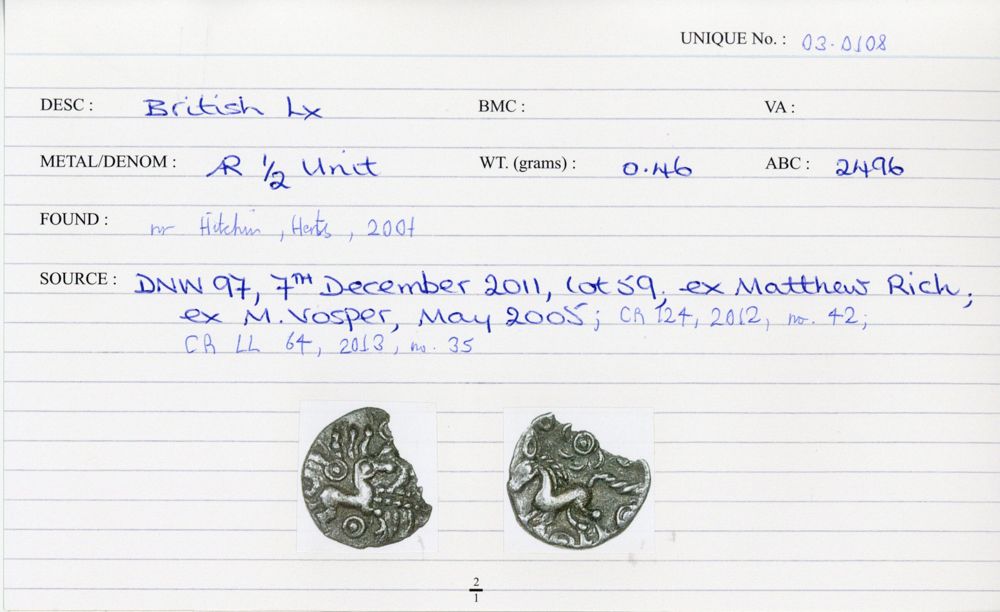 UNIQUE No. : 03.0108
DESC : British Lx BMC : VA :
METAL/DENOM : AR 1/2 Unit WT. (grams) : 0.46 ABC : 2496
FOUND : nr Hitchin, Herts, 2001
SOURCE : DNW 97, 7TH December 2011, lot 59, ex Matthew Rich;
ex M. Vosper, May 2005; CR 124, 2012, no. 42;
CR LL 64, 2013, no. 35
2/1